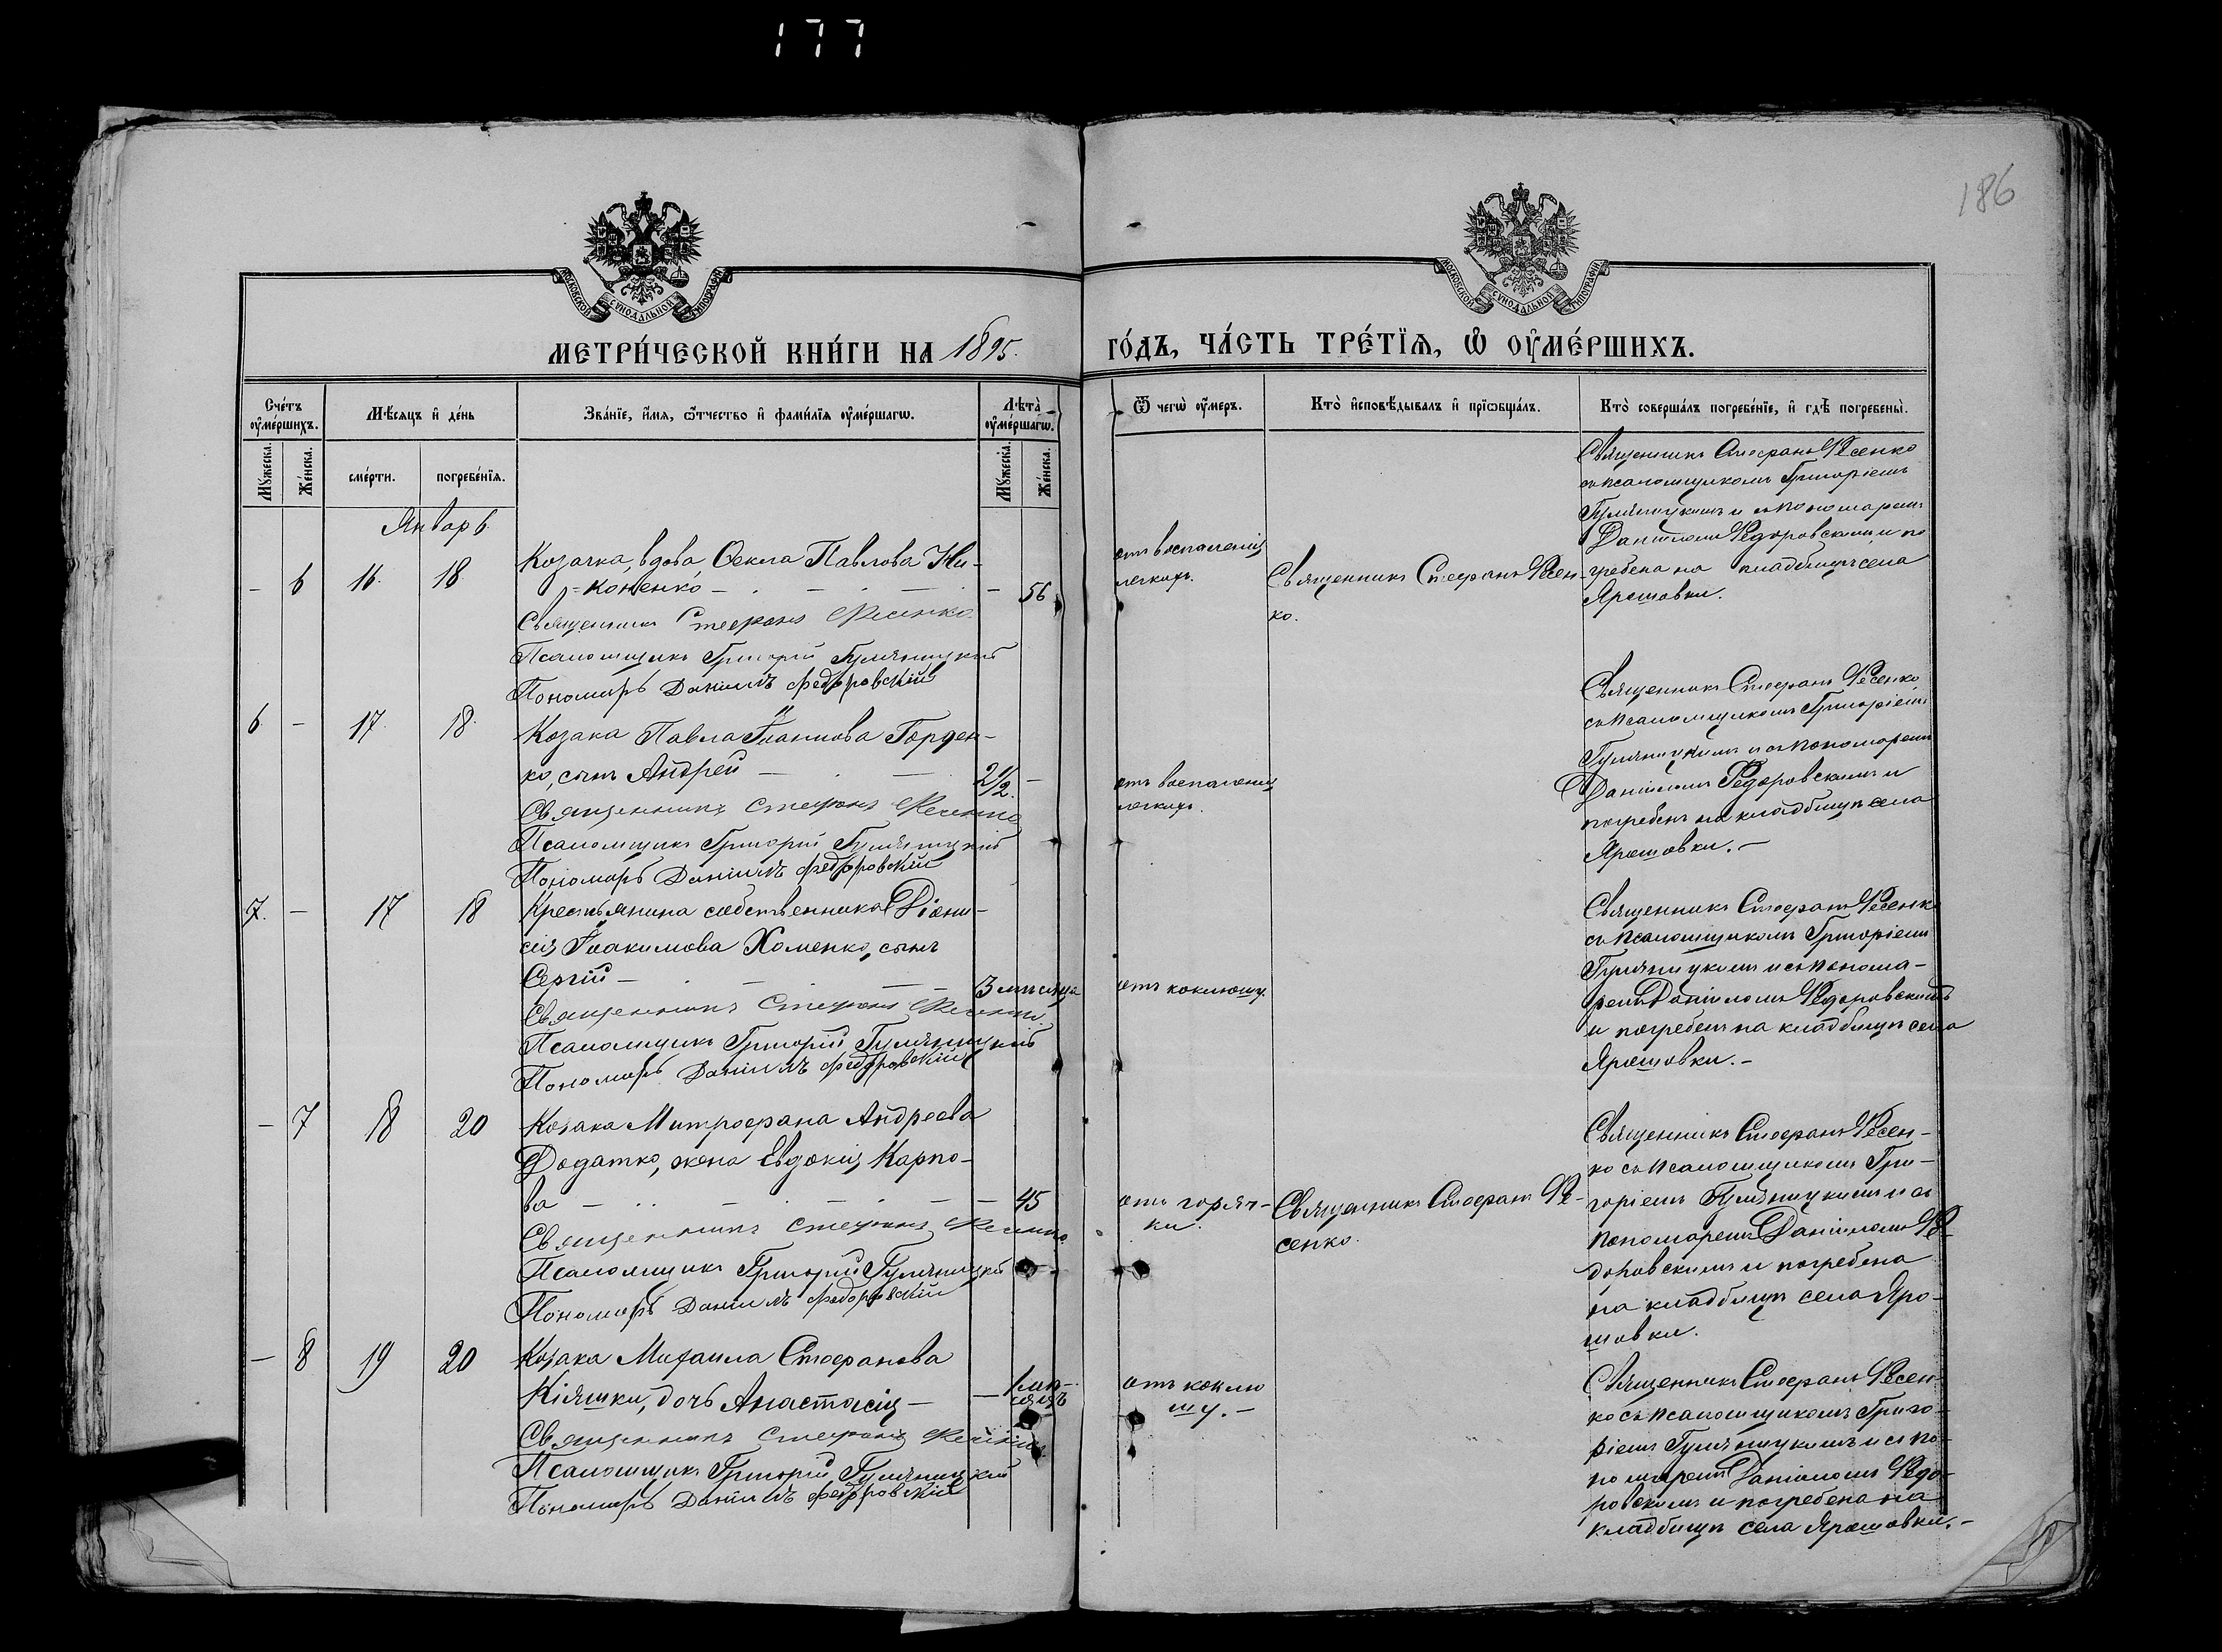 177
186
МОСКОВСКОЙ СУНОДАЛЬНОЙ ТИПОГРАФІИ
МОСКОВСКОЙ СУНОДАЛЬНОЙ ТИПОГРАФІИ
МЕТРИ́ЧЕСКОЙ КНИ́ГИ НА 1895.
ГО́ДЪ, ЧА́СТЬ ТРЕ́ТЇѦ, Ѡ ОУМЕ́РШИХЪ.
Сче́тъ оумершихъ.
Мѣсяцъ и де́нь
Зва́нїе, и́мя, ѻтчество и фами́лїя оуме́ршагѡ.
Лѣта̀ оуме́ршагѡ.
Ѿ чегѡ̀ оумеръ.
Кто̀ исповѣдывалъ и прїѡбща́лъ.
Кто̀ соверша́лъ погребе́нїе, и гдѣ̀ погребены̀.
Мꙋжеска.
Же́нска.
сме́рти.
погребе́нїя.
Мꙋжеска.
Же́нска.
Январь
- 6 16. 18.
Козачка, вдова Ѳекла Павлова Ни-
коненко - 56
Священникъ Стефанъ Фесенко
Псаломщикъ Григорій Гумѣницкій
Пономарь Даніилъ Федоровскій
отъ воспаленія
легкихъ.
Священникъ Стефанъ Фесен-
ко.
Священникъ Стефанъ Фесенко
съ псаломщикомъ Григоріемъ
Гумѣницкимъ и съ пономаремъ
Даніиломъ Федоровскимъ и по
гребена на кладбищѣ села
Ярошовки.
6 - 17. 18.
Козака Павла Іоаннова Горден-
ко, сынъ Андрей - 2 1/2. -
Священникъ Стефанъ Фесенко
Псаломщикъ Григорій Гумѣницкій
Пономарь Даніилъ Федоровскій
отъ воспаленія
легкихъ.
Священникъ Стефанъ Фесенко
съ псаломщикомъ Григоріемъ
Гумѣницкимъ и съ пономаремъ
Даніиломъ Федоровскимъ и
погребенъ на кладбищѣ села
Ярошовки. -
7. - 17 18
Крестьянина собственника Діони-
сія Іоакимова Хоменко, сынъ
Сергій - 3 мѣсяца
Священникъ Стефанъ Фесенко
Псаломщикъ Григорій Гумѣницкій
Пономарь Даніилъ Федоровскій
отъ коклюшу.
Священникъ Стефанъ Фесенко
съ псаломщикомъ Григоріемъ
Гумѣницкимъ и съ понома-
ремъ Даніиломъ Федоровскимъ
и погребенъ на кладбищѣ села
Ярошовки. -
- 7 18 20
Козака Митрофана Андреева
Додатко, жена Евдокія Карпо-
ва - 45
Священникъ Стефанъ Фесенко
Псаломщикъ Григорій Гумѣницкій
Пономарь Даніилъ Федоровскій
отъ горяч-
ки.
Священникъ Стефанъ Фе-
сенко.
Священникъ Стефанъ Фесен-
ко съ псаломщикомъ Гри-
горіемъ Гумѣницкимъ и съ
пономаремъ Даніиломъ Фе-
доровскимъ и погребена
на кладбищѣ села Яро-
шовки.
- 8 19 20
Козака Михаила Стефанова
Кіяшки, дочь Анастасія - 1 мѣ-
сяцъ
Священникъ Стефанъ Фесенко
Псаломщикъ Григорій Гумѣницкій
Пономарь Даніилъ Федоровскій
отъ коклю
шу. -
Священникъ Стефанъ Фесен-
ко съ псаломщикомъ Григо-
ріемъ Гумѣницкимъ и съ по-
номаремъ Даніиломъ Федо-
ровскимъ и погребена на
кладбищѣ села Ярошовки. -